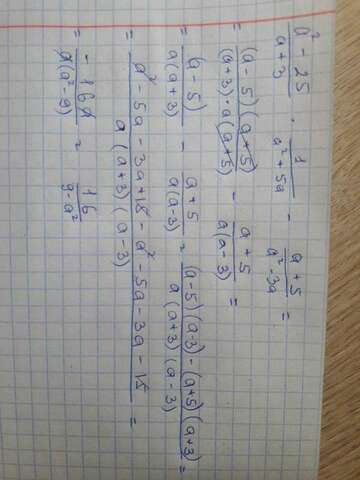 (a² - 25)/(a + 3) · 1/(a² + 5a) - (a + 5)/(a² - 3a) =
= (a - 5)(a + 5)/((a + 3) · a(a + 5)) - (a + 5)/(a(a - 3)) =
= (a - 5)/(a(a + 3)) - (a + 5)/(a(a - 3)) = ((a - 5)(a - 3) - (a + 5)(a + 3))/(a(a + 3)(a - 3)) =
= (a² - 5a - 3a + 15 - a² - 5a - 3a - 15)/(a(a + 3)(a - 3)) =
= (-16a)/(a(a² - 9)) = 16/(9 - a²)